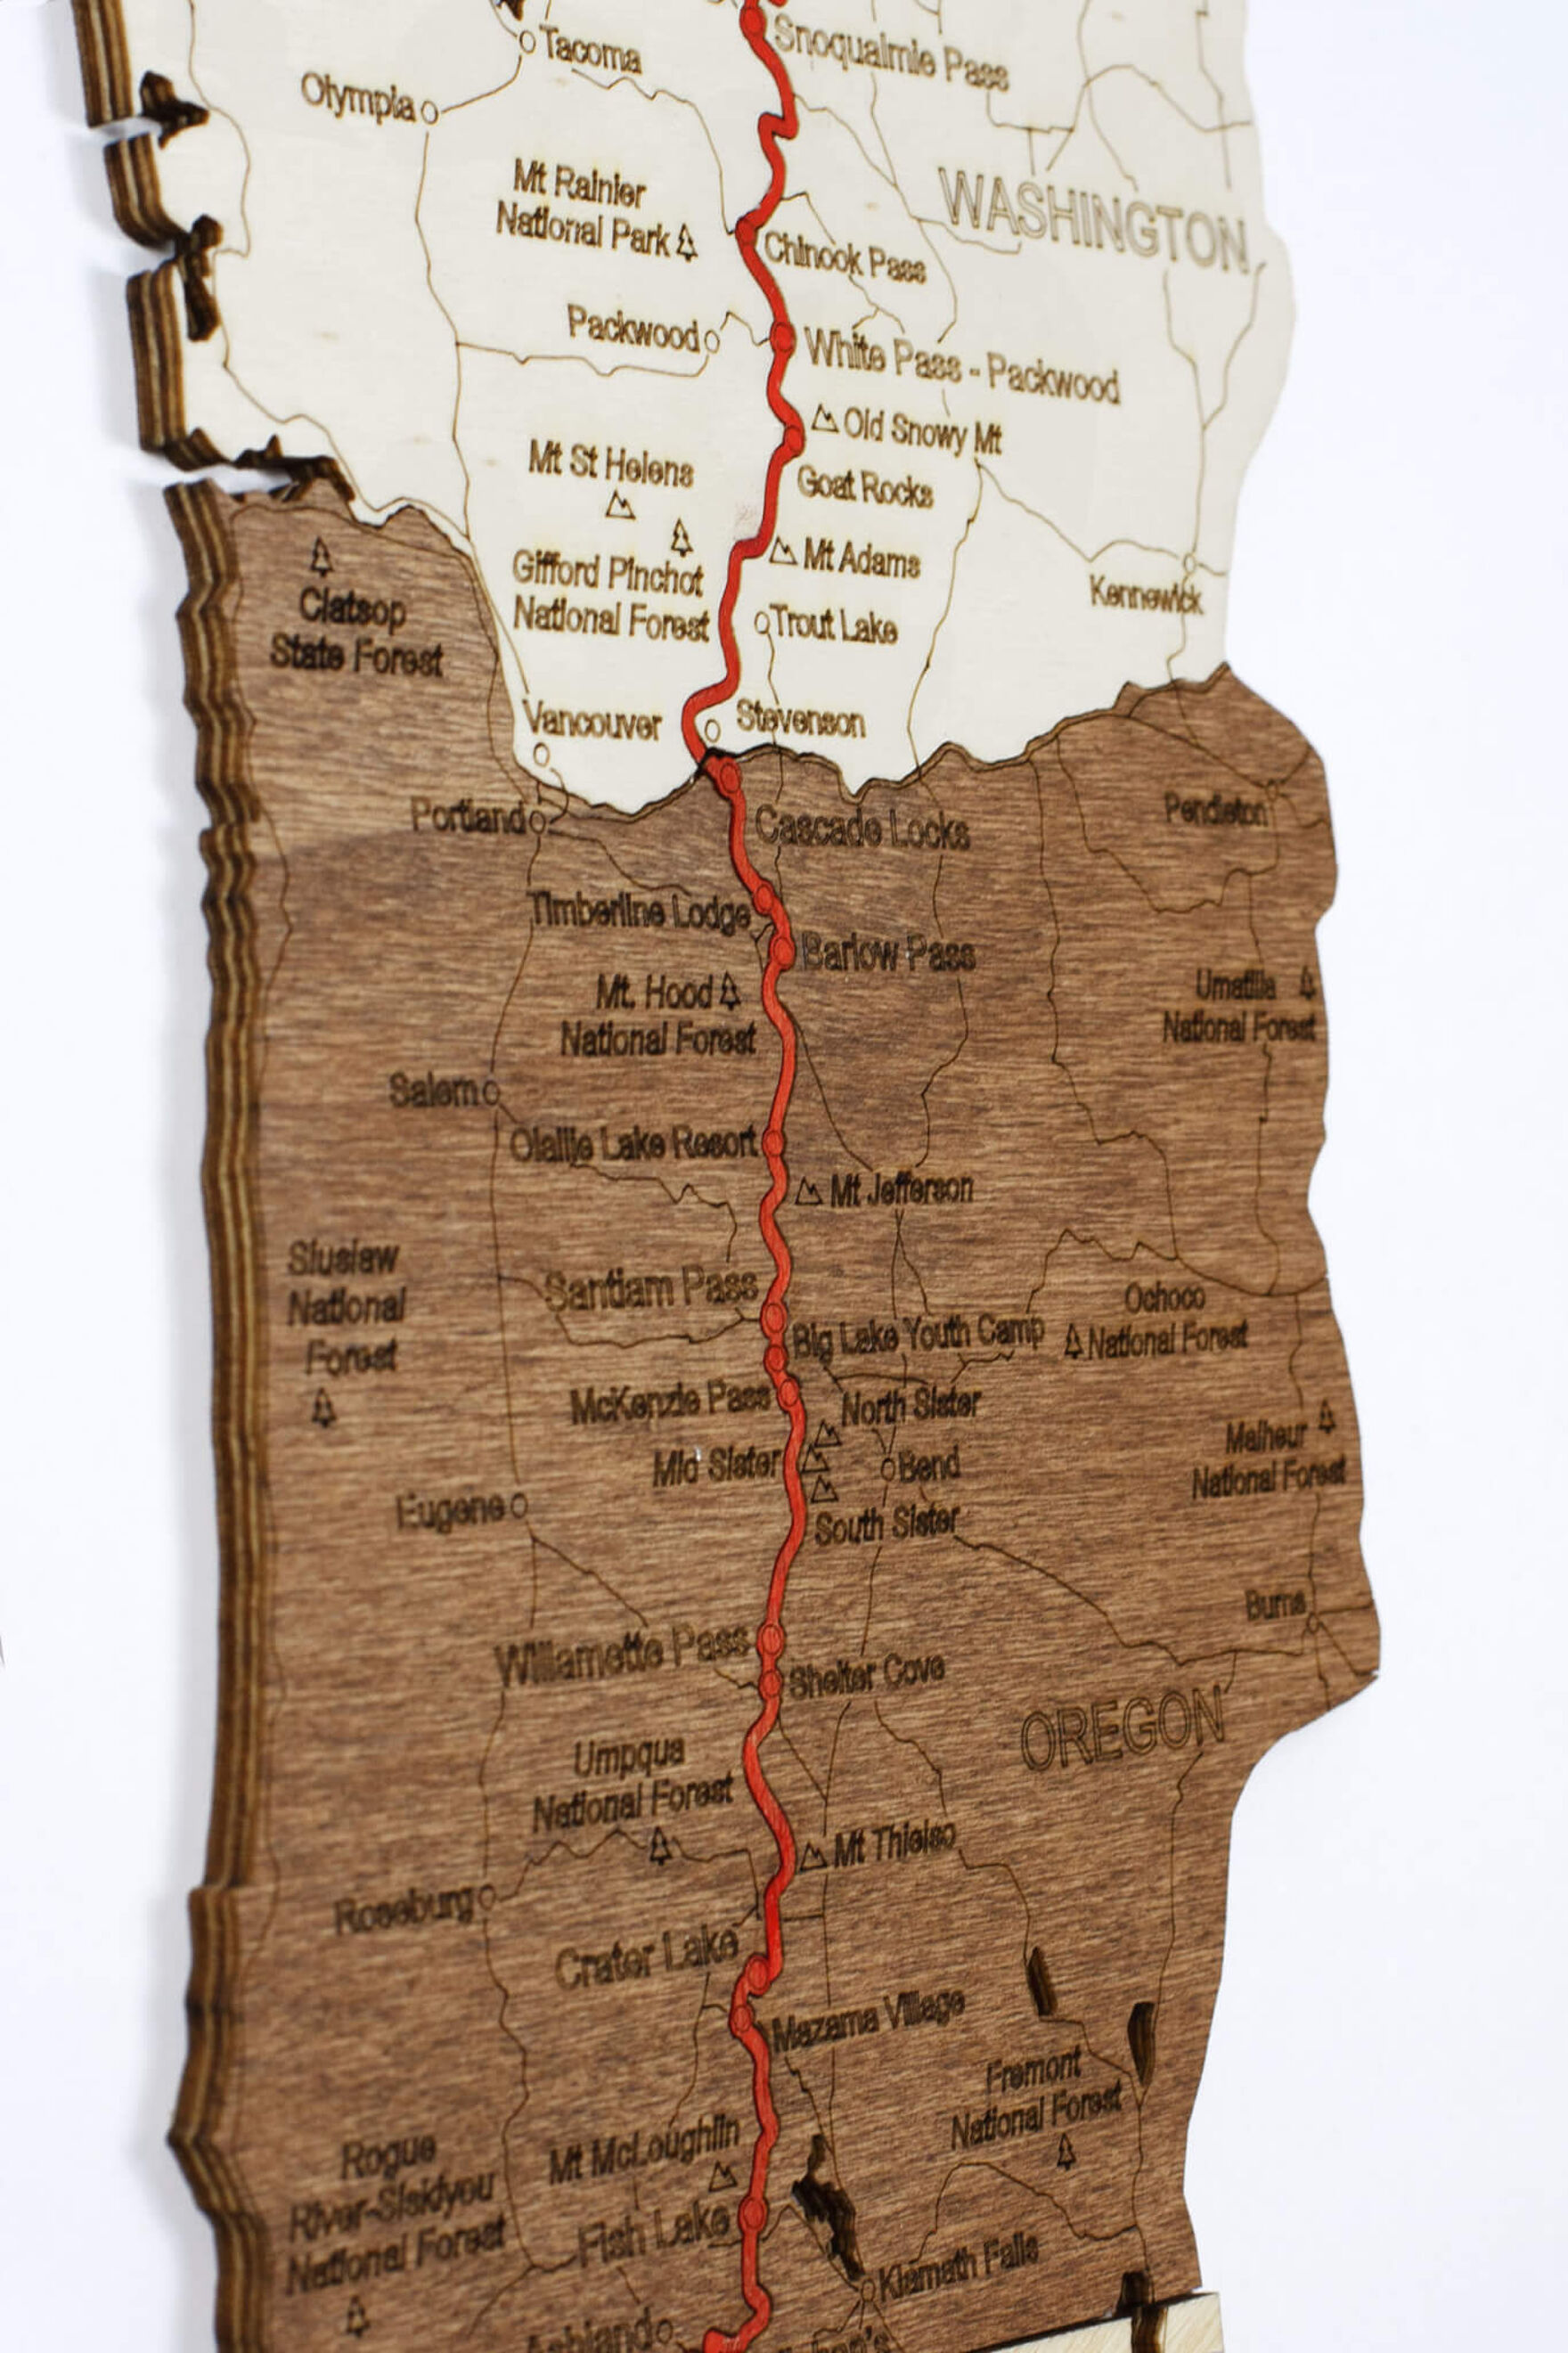 Tacoma
Snoqualmie Pass
Olympia
Mt Rainier
National Park
WASHINGTON
Chinook Pass
Packwood
White Pass - Packwood
Old Snowy Mt
Mt St Helens
Goat Rocks
Mt Adams
Gifford Pinchot
National Forest
Kennewick
Clatsop
State Forest
Trout Lake
Vancouver
Stevenson
Portland
Cascade Locks
Pendleton
Timberline Lodge
Barlow Pass
Mt. Hood
National Forest
Umatilla
National Forest
Salem
Olallie Lake Resort
Mt Jefferson
Siuslaw
National
Forest
Santiam Pass
Big Lake Youth Camp
Ochoco
National Forest
McKenzie Pass
North Sister
Mid Sister
Bend
Malheur
National Forest
Eugene
South Sister
Burns
Willamette Pass
Shelter Cove
OREGON
Umpqua
National Forest
Mt Thielso
Roseburg
Crater Lake
Mazama Village
Fremont
National Forest
Mt McLoughlin
Rogue
River-Siskiyou
National Forest
Fish Lake
Klamath Falls
Ashland